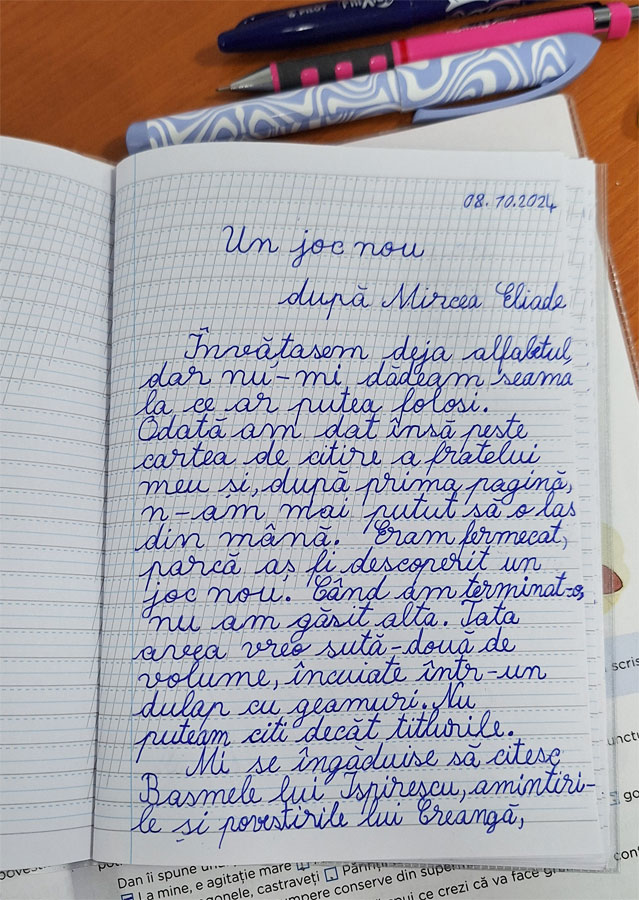 PILOT
08.10.2024
Un joc nou
după Mircea Eliade
Învățasem deja alfabetul,
dar nu-mi dădeam seama
la ce ar putea folosi.
Odată am dat însă peste
cartea de citire a fratelui
meu și, după prima pagină,
n-am mai putut să o las
din mână. Eram fermecat,
parcă aș fi descoperit un
joc nou. Când am terminat-o,
nu am găsit alta. Tata
avea vreo sută-două de
volume, încuiate într-un
dulap cu geamuri. Nu
puteam citi decât titlurile.
Mi se îngăduise să citesc
Basmele lui Ispirescu, amintiri-
le și povestirile lui Creangă,
scris
Dan îi spune
La mine, e agitație mare
castraveți
conserve din
ce crezi că va face